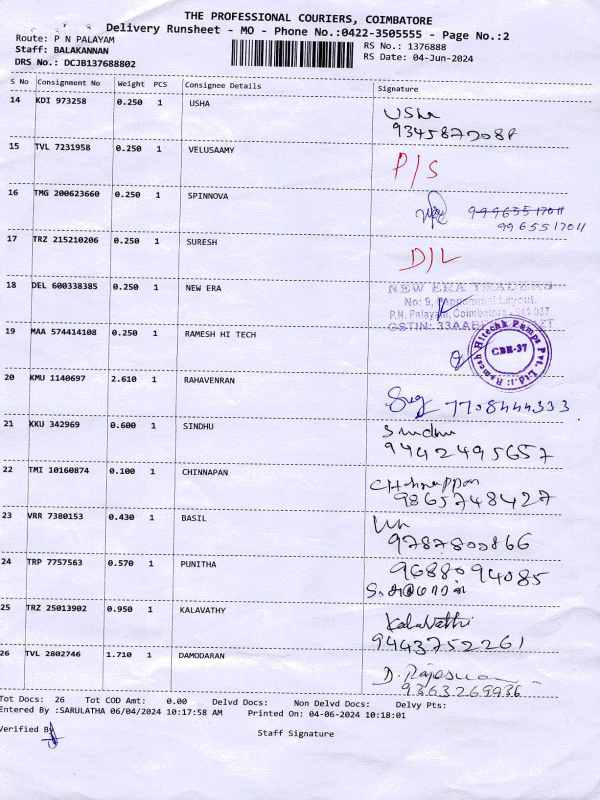 THE PROFESSIONAL COURIERS, COIMBATORE
Delivery Runsheet - MO - Phone No.:0422-3505555 - Page No.:2
Route: P N PALAYAM
RS No.: 1376888
Staff: BALAKANNAN
RS Date: 04-Jun-2024
DRS No.: DCJB137688802
S No Consignment No Weight PCS Consignee Details Signature
14 KDI 973258 0.250 1 USHA
Usha
15 TVL 7231958 0.250 1 VELUSAAMY
P/S
16 TMG 200623660 0.250 1 SPINNOVA
9965517011
9965517011
17 TRZ 215210206 0.250 1 SURESH
D/L
18 DEL 600338385 0.250 1 NEW ERA
NEW ERA TRADERS
No: 9, Layout,
P.N. Palayam, Coimbatore - 641 037
GSTIN: 33AAE
19 MAA 574414108 0.250 1 RAMESH HI TECH
Ramesh Hitechk Pumps Pvt. Ltd.
CBE-37
20 KMU 1140697 2.610 1 RAHAVENRAN
7708444333
21 KKU 342969 0.600 1 SINDHU
Sindhu
9442495657
22 TMI 10160874 0.100 1 CHINNAPAN
Chinnappan
9865748427
23 VRR 7380153 0.430 1 BASIL
9787800866
24 TRP 7757563 0.570 1 PUNITHA
9688094085
25 TRZ 25013902 0.950 1 KALAVATHY
Kalavathi
9443752261
26 TVL 2802746 1.710 1 DAMODARAN
9363269936
Tot Docs: 26 Tot COD Amt: 0.00 Delvd Docs: Non Delvd Docs: Delvy Pts:
Entered By :SARULATHA 06/04/2024 10:17:58 AM Printed On: 04-06-2024 10:18:01
Verified By
Staff Signature